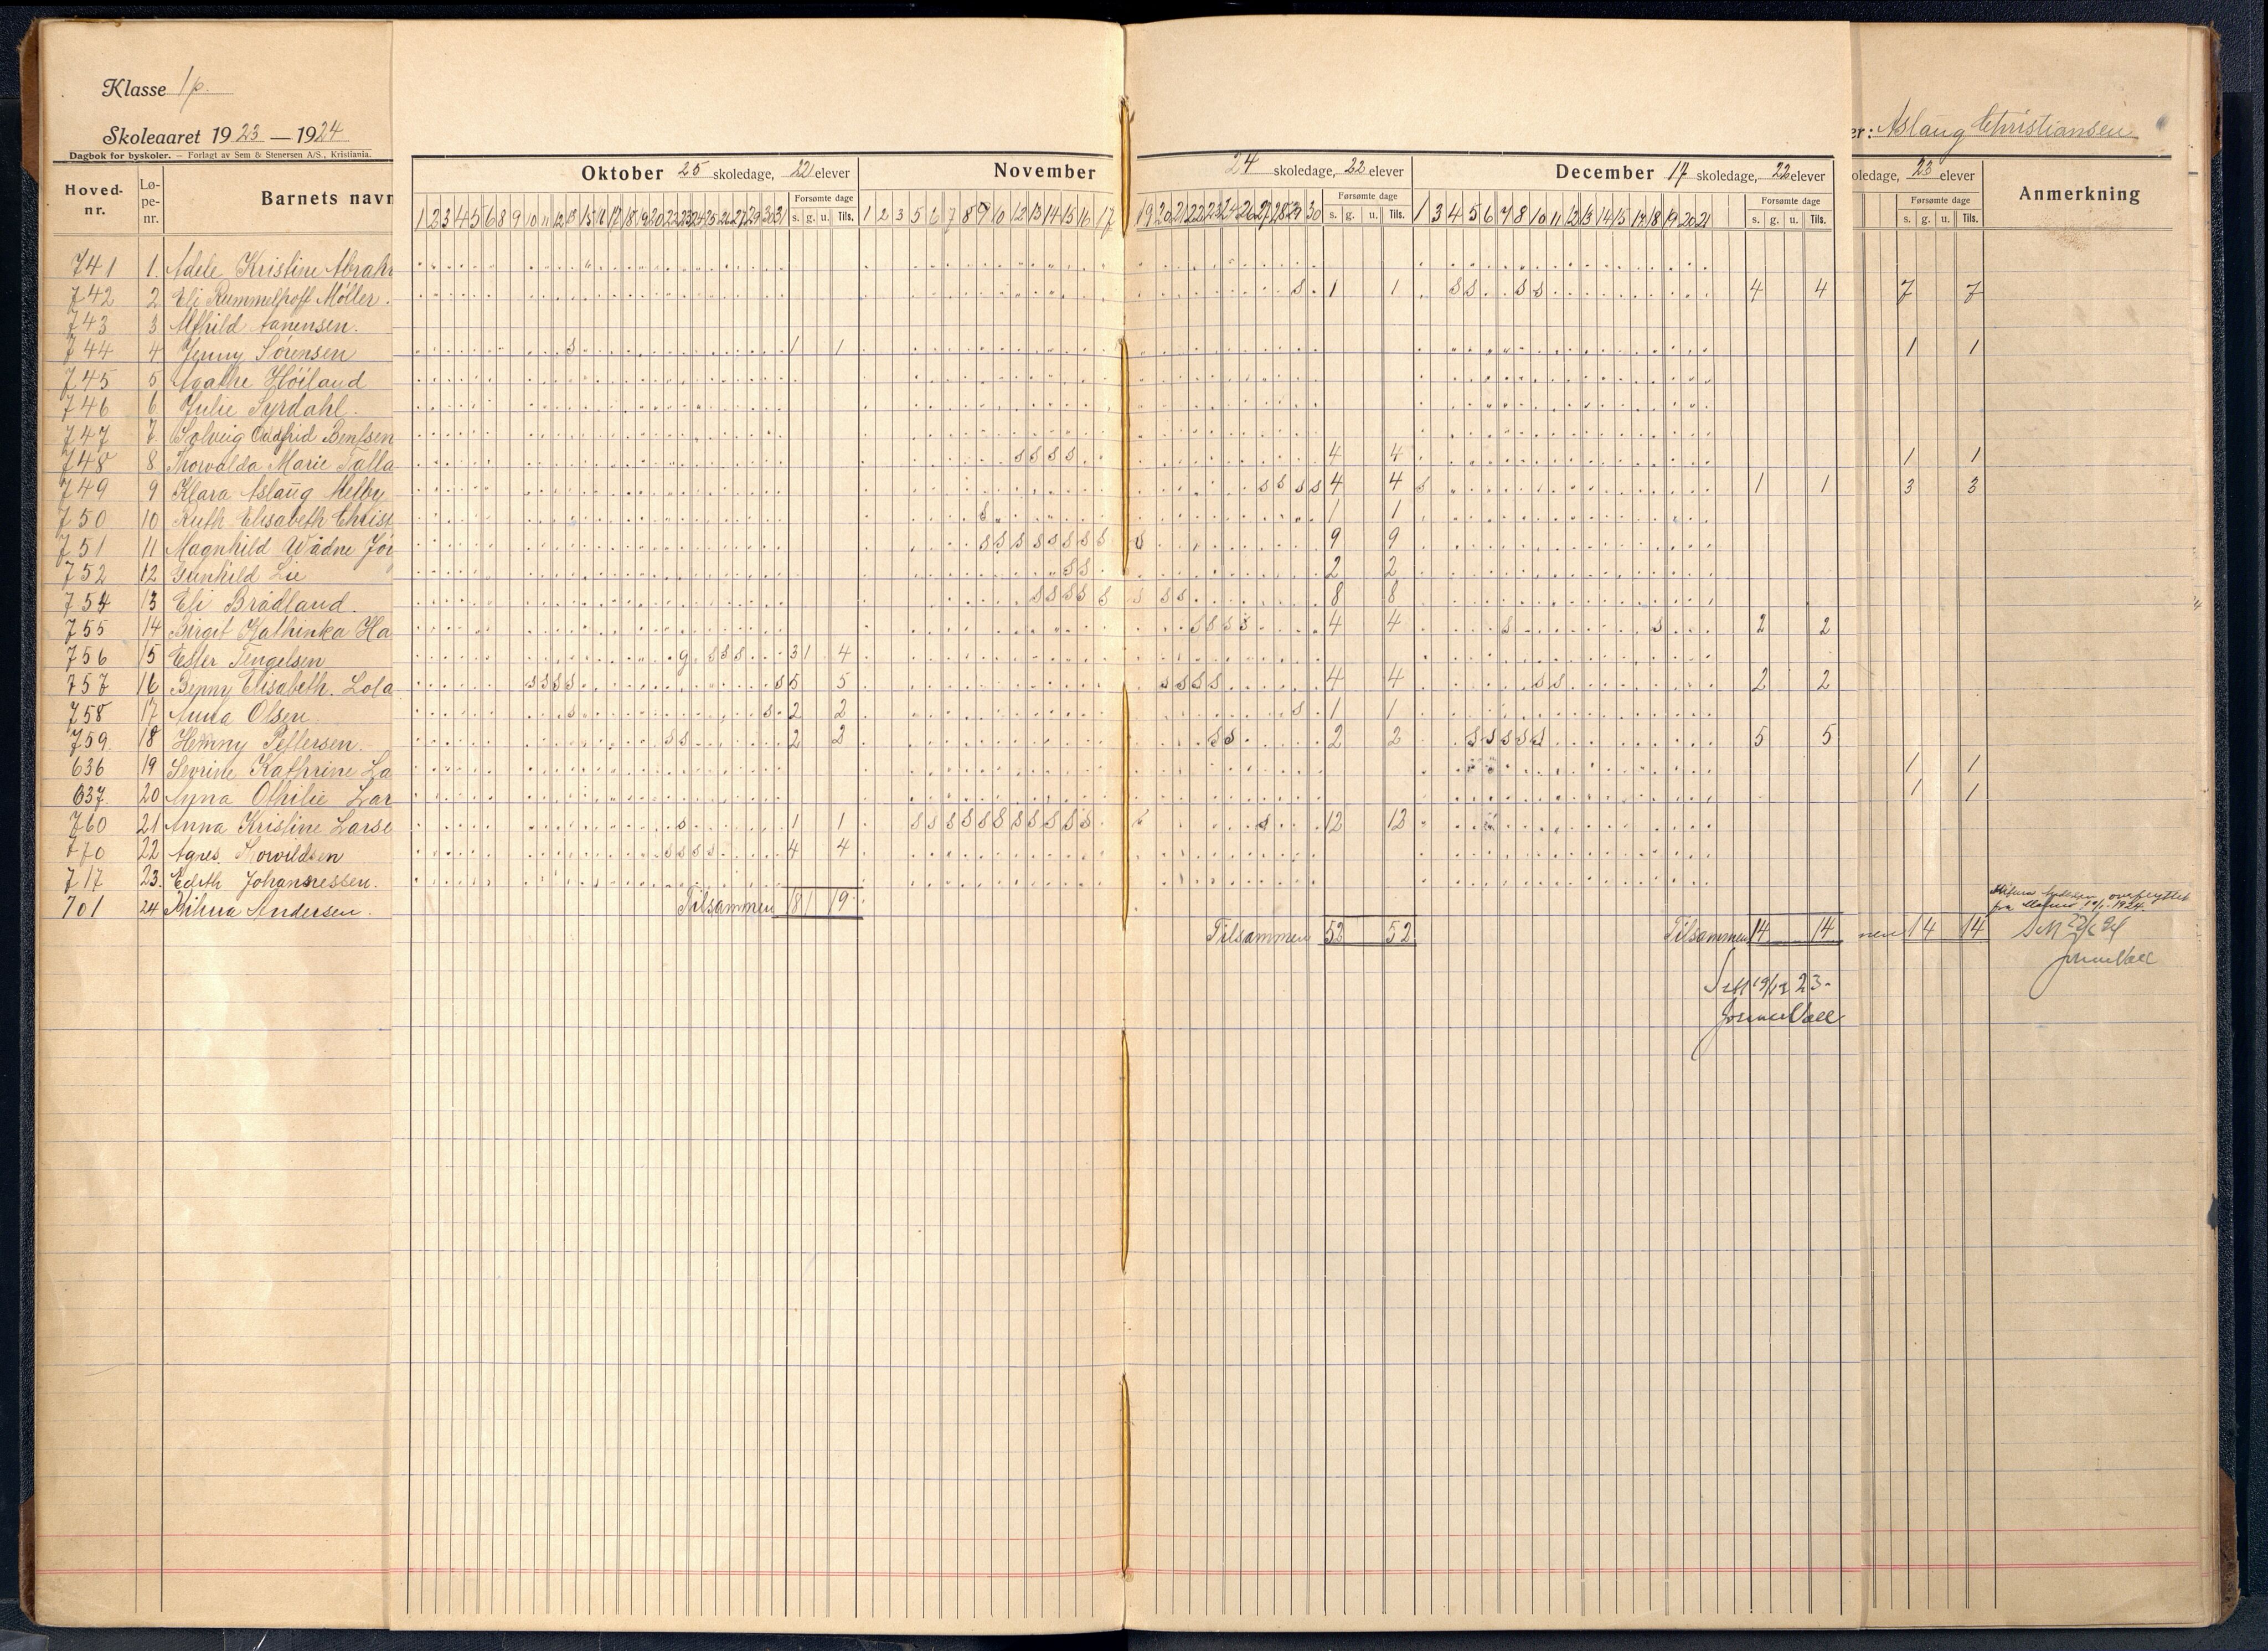 Klasse 1p.
Skoleaaret 1923 — 1924
Dagbok for byskoler. — Forlagt av Sem & Stenersen A/S., Kristiania.
er: Aslaug Christiansen
Hoved-nr. Lø-pe-nr. Barnets navn
Oktober 25 skoledage, 22 elever
November 24 skoledage, 22 elever
December 17 skoledage, 22 elever
oledage, 23 elever
Anmerkning
Forsømte dage Forsømte dage Forsømte dage Forsømte dage
1 2 3 4 5 6 8 9 10 11 12 13 15 16 17 18 19 20 22 23 24 25 26 27 29 30 31 s. g. u. Tils.
1 2 3 5 6 7 8 9 10 12 13 14 15 16 17 19 20 21 22 23 24 26 27 28 29 30 s. g. u. Tils.
1 3 4 5 6 7 8 10 11 12 13 14 15 17 18 19 20 21 s. g. u. Tils.
s. g. u. Tils.
741 1. Adele Kristine Abrah
742 2 Eli Rummelhoff Møller. s 1 1 s s s s 4 4 7 7
743 3 Alfhild Aanensen.
744 4 Jenny Sørensen s 1 1 1 1
745 5 Agathe Høiland
746 6. Julie Syrdahl.
747 7. Solveig Oddfrid Bentsen
748 8. Thorvalda Marie Talla s s s s 4 4 1 1
749 9 Klara Aslaug Melby s s s s 4 4 s 1 1 3 3
750 10 Ruth Elisabeth Christ s 1 1
751 11 Magnhild Wådne Jør s s s s s s s s s 9 9
752 12 Gunhild Lie s s 2 2
754 13 Eli Brådland. s s s s s s s s 8 8
755 14 Birgit Kathinka Ha s s s s 4 4 s s 2 2
756 15 Ester Tengelsen g s s s 3 1 4
757 16 Benny Elisabeth. Lola s s s s s 5 5 s s s s 4 4 s s 2 2
758 17 Anna Olsen s s 2 2 s 1 1
759. 18 Henny Pettersen. s s 2 2 s s 2 2 s s s s s 5 5
636 19 Sevrine Kathrine La 1 1
637. 20 Anna Othilie Lar 1 1
760 21 Anna Kristine Larse s 1 1 s s s s s s s s s s s s 12 12
770 22 Agnes Thorvildsen s s s s 4 4
717 23. Edith Johannessen.
701 24 Andersen.
Tilsammen 18 1 19
Tilsammen 52 52
Tilsammen 14 14
men 14 14
Andersen overflyttet
fra 1924.
Sett 19/12 23-